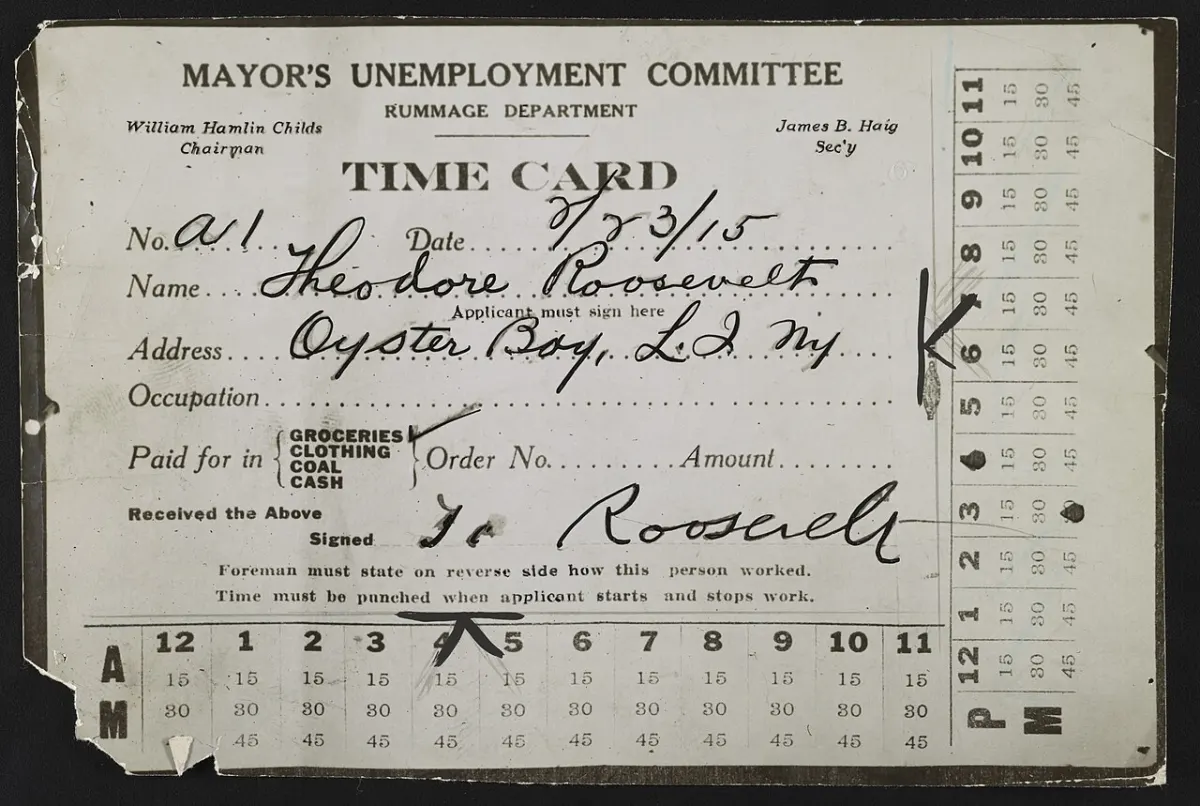 MAYOR'S UNEMPLOYMENT COMMITTEE
RUMMAGE DEPARTMENT
William Hamlin Childs
Chairman
James B. Haig
Sec'y
TIME CARD
No. a1 Date 2/23/15
Name Theodore Roosevelt
Applicant must sign here
Address Oyster Bay, L.I NY
Occupation
Paid for in { GROCERIES CLOTHING COAL CASH } Order No. Amount
Received the Above
Signed Roosevelt
Foreman must state on reverse side how this person worked.
Time must be punched when applicant starts and stops work.
AM 12 1 2 3 4 5 6 7 8 9 10 11
15 15 15 15 15 15 15 15 15 15 15 15
30 30 30 30 30 30 30 30 30 30 30 30
45 45 45 45 45 45 45 45 45 45 45
PM 12 1 2 3 5 6 8 9 10 11
15 15 15 15 15 15 15 15 15 15 15 15
30 30 30 30 30 30 30 30 30 30 30 30
45 45 45 45 45 45 45 45 45 45 45